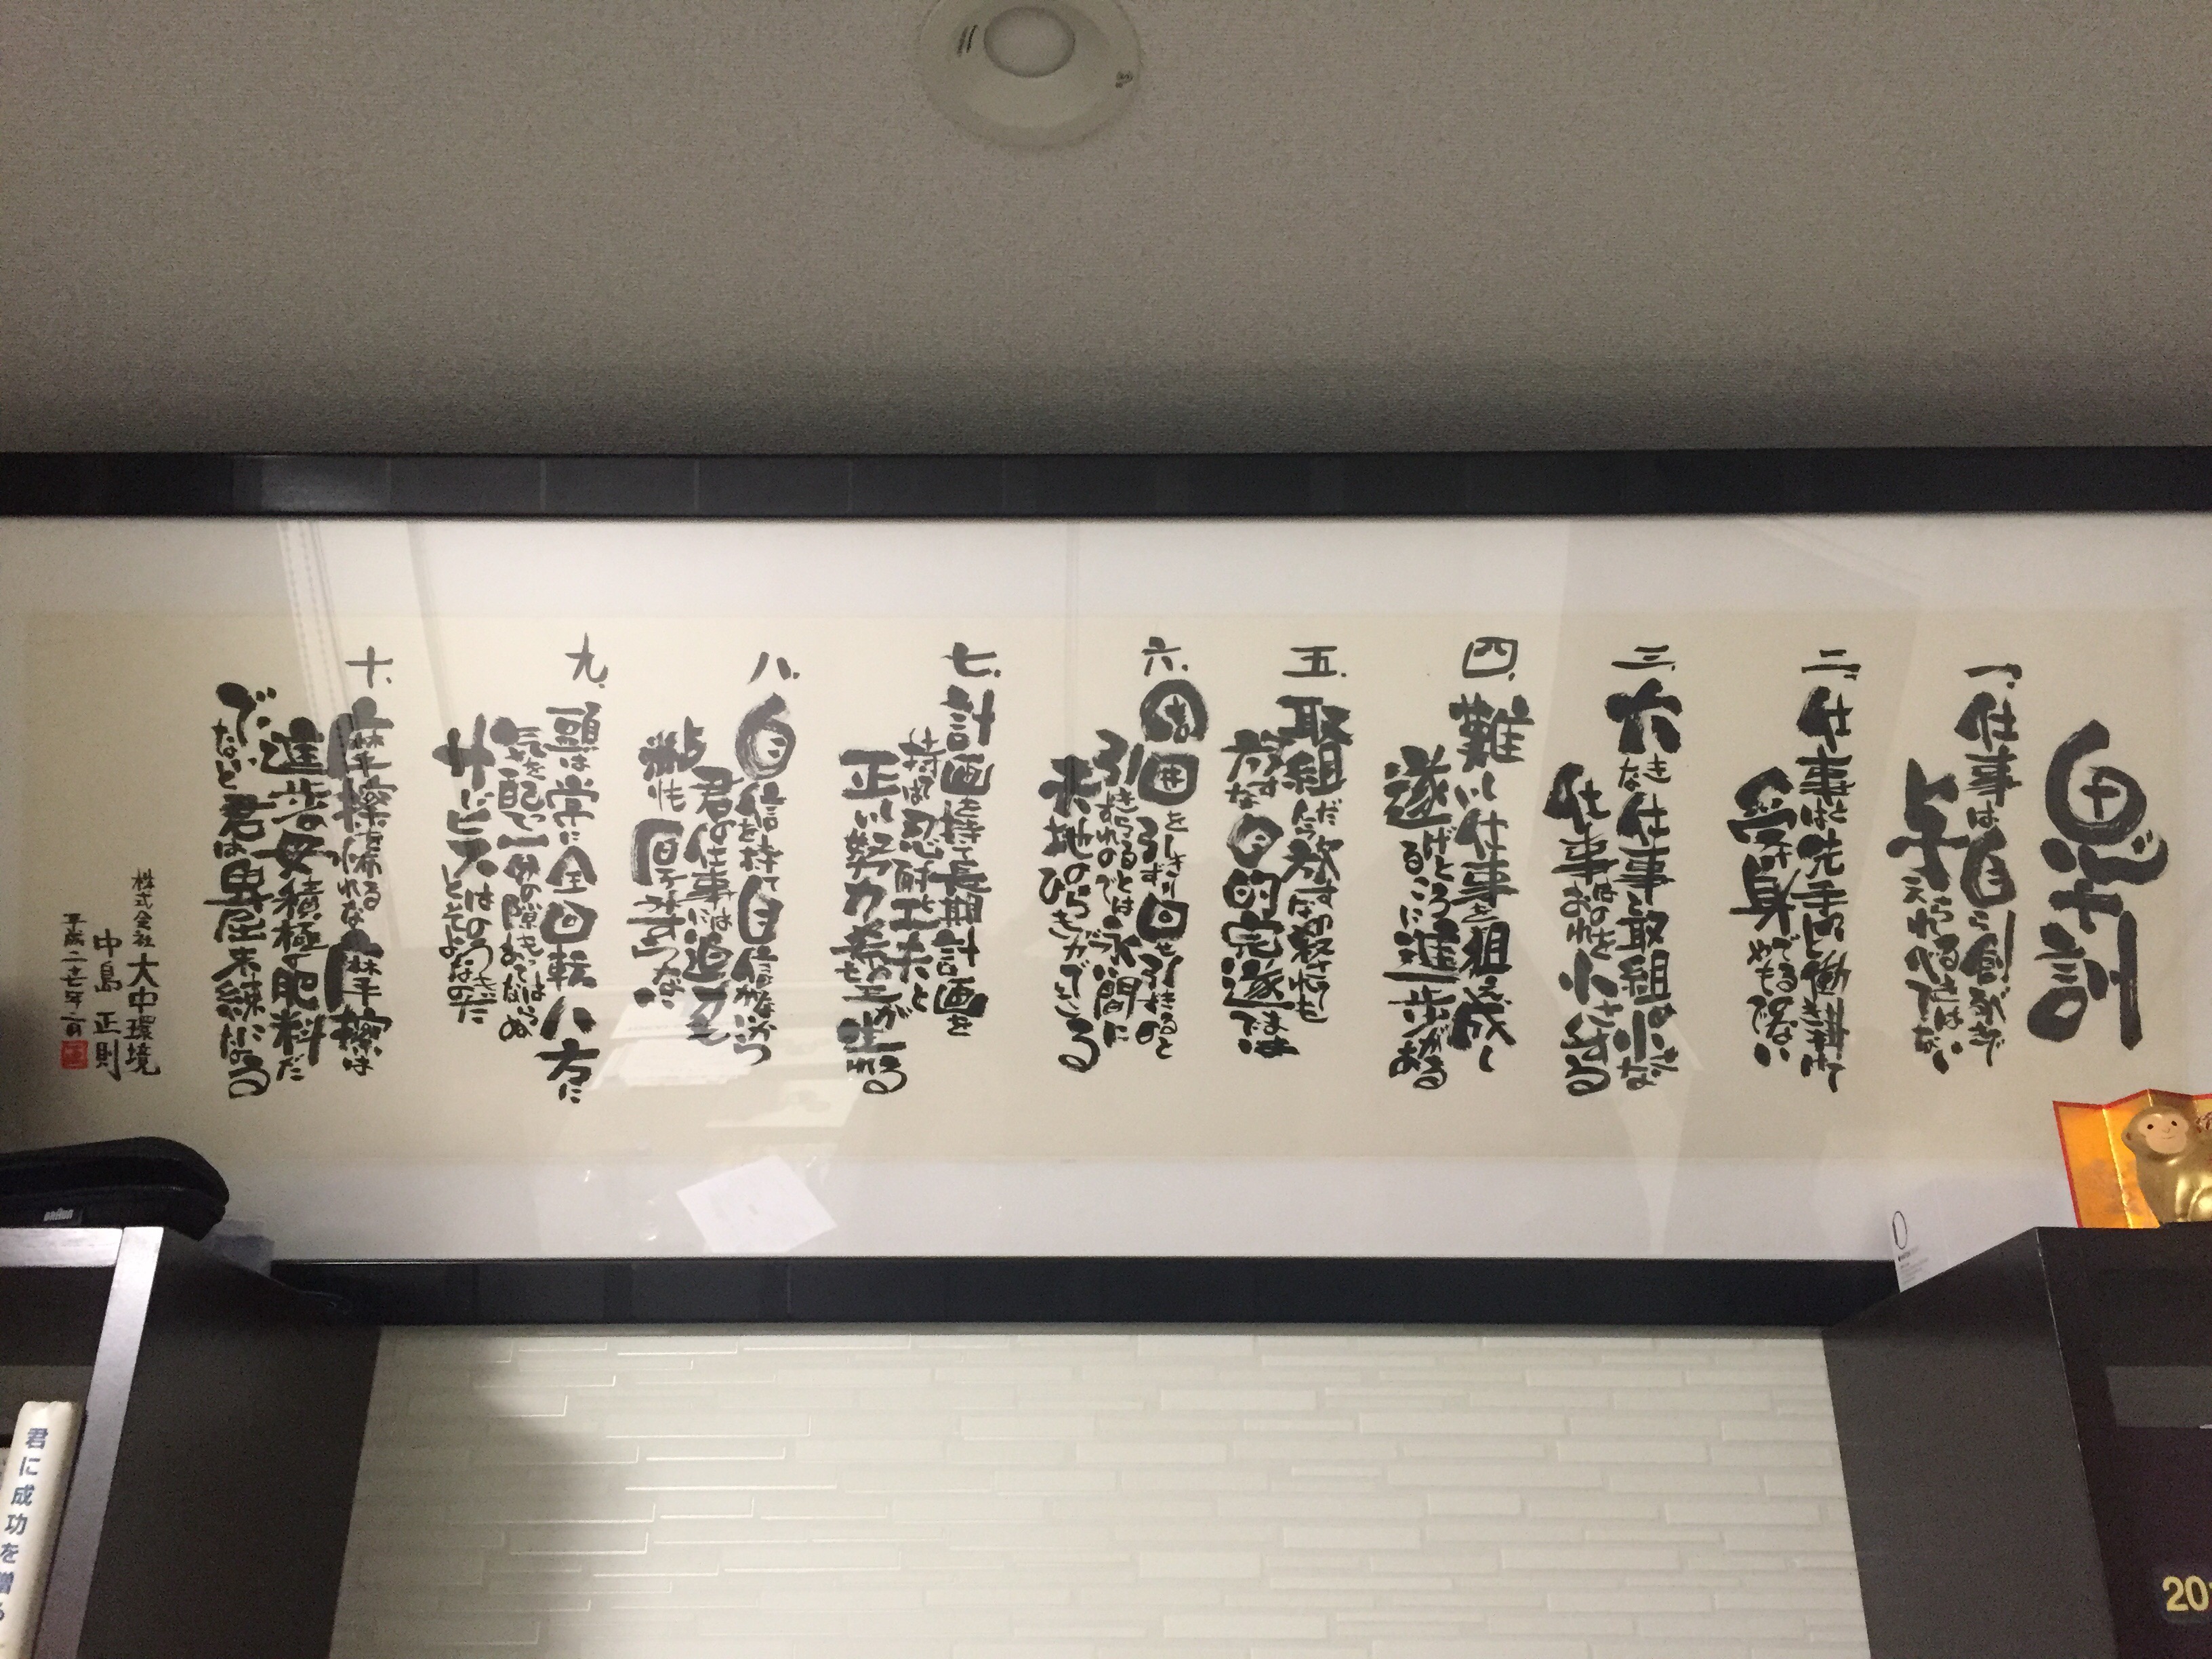 鬼十訓
一、仕事は自ら創るべきで
与えられるべきではない
二、仕事とは先手先手と働き掛けて
受け身でやるものでない
三、大きな仕事と取組め小さな
仕事はおのれを小さくする
四、難しい仕事を狙え成し
遂げるところに進歩がある
五、取組んだら放すな殺されても
放すな目的完遂までは
六、周囲を引きずり回せ引きずるのと
引きずられるのとでは永い間に
天地のひらきができる
七、計画を持て長期計画を
持てば忍耐と工夫と
正しい努力と希望が生れる
八、自信を持て自信がないから
君の仕事には迫力も
粘りも厚みすらない
九、頭は常に全回転八方に
気を配って一分の隙もあってはならぬ
サービスとはそのようなものだ
十、摩擦を怖れるな摩擦は
進歩の母積極の肥料だ
でないと君は卑屈未練になる
株式会社大中環境
中島 正則
平成二十七年二月
BRAUN
君に成功を贈る
20